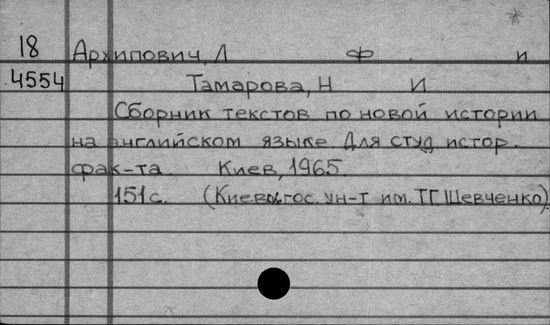 18 Архипович, Л Ф. и
4554 Тамарова, Н И
Сборник текстов по новой истории
на английском языке Для студ истор.
фак-та. Киев, 1965.
151с. (Киевск гос. ун-т им. Т.Г. Шевченко)